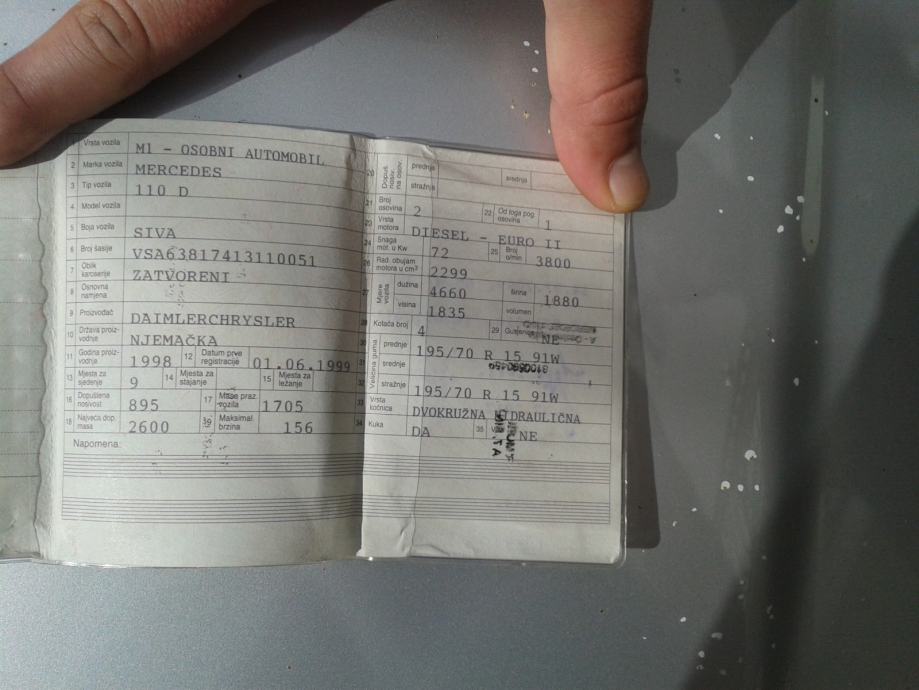 1 Vrsta vozila M1 - OSOBNI AUTOMOBIL
2 Marka vozila MERCEDES
3 Tip vozila 110 D
4 Model vozila
5 Boja vozila SIVA
6 Broj šasije VSA63817413110051
7 Oblik karoserije ZATVORENI
8 Osnovna namjena
9 Proizvođač DAIMLERCHRYSLER
10 Država proizvodnje NJEMAČKA
11 Godina proizvodnje 1998 12 Datum prve registracije 01.06.1999
13 Mjesta za sjedenje 9 14 Mjesta za stajanje 15 Mjesta za ležanje
16 Dopuštena nosivost 895 17 Masa praz. vozila 1705
18 Najveća dop. masa 2600 Maksimal. brzina 156
Napomena:
20 Dopuš. nosiv. na osov. prednje srednje
stražnje
21 Broj osovina 2 22 Od toga pog. osovina 1
23 Vrsta motora DIESEL - EURO II
24 Snaga mot. u Kw 72 25 Broj o/min 3800
26 Rad. obujam motora u cm³ 2299
27 Mjere vozila dužina 4660 širina 1880
visina 1835 volumen
28 Kotača broj 4 29 NE
30 Veličina guma prednje 195/70 R 15 91W
31 srednje
32 stražnje 195/70 R 15 91W
33 Vrsta kočnica DVOKRUŽNA HIDRAULIČNA
34 Kuka DA 35 NE